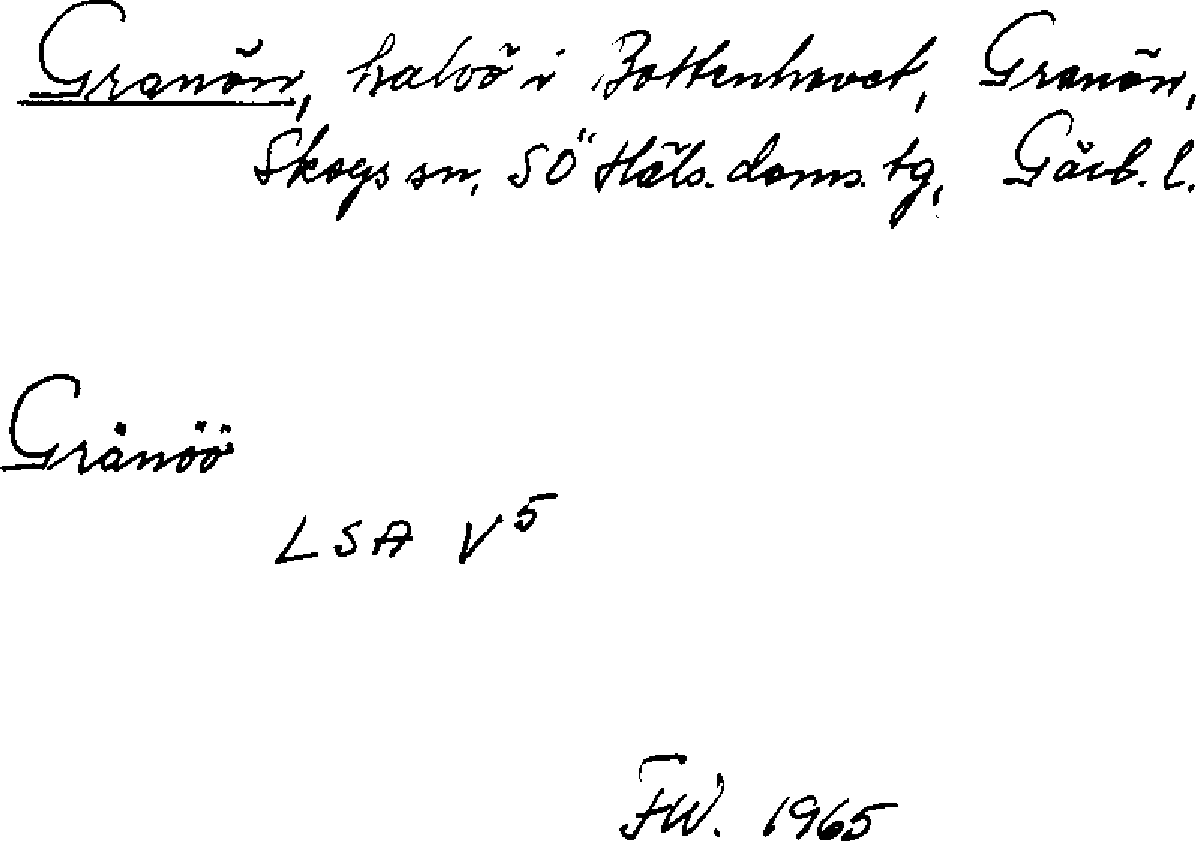 Granön, halvö i Bottenhavet, Granön,
Skogs sn, SÖ Häls. doms. tg, Gävb. l.
Gränöö
LSA V5
FW. 1965